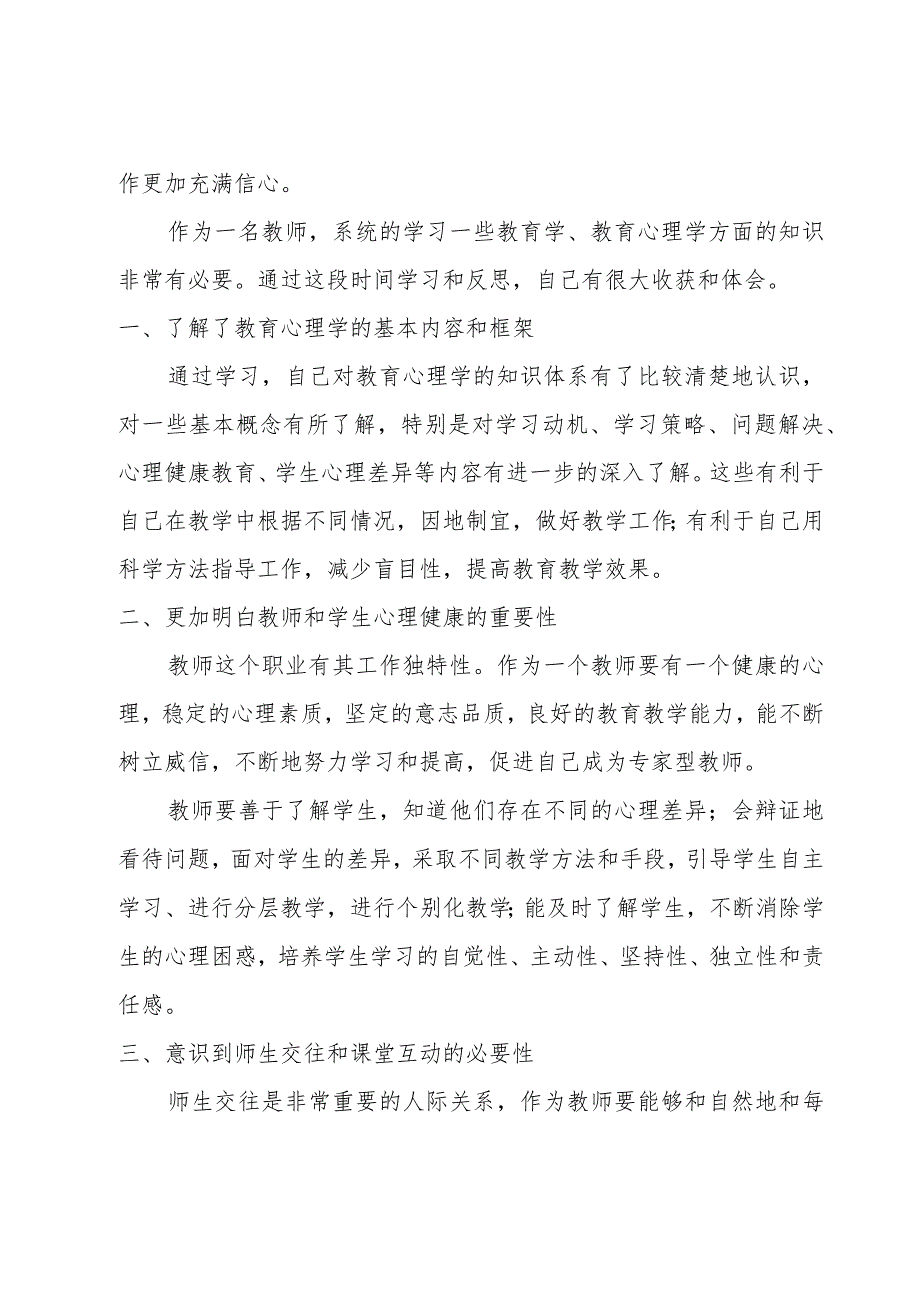 作更加充满信心。
作为一名教师，系统的学习一些教育学、教育心理学方面的知识
非常有必要。通过这段时间学习和反思，自己有很大收获和体会。
一、了解了教育心理学的基本内容和框架
通过学习，自己对教育心理学的知识体系有了比较清楚地认识，
对一些基本概念有所了解，特别是对学习动机、学习策略、问题解决、
心理健康教育、学生心理差异等内容有进一步的深入了解。这些有利于
自己在教学中根据不同情况，因地制宜，做好教学工作；有利于自己用
科学方法指导工作，减少盲目性，提高教育教学效果。
二、更加明白教师和学生心理健康的重要性
教师这个职业有其工作独特性。作为一个教师要有一个健康的心
理，稳定的心理素质，坚定的意志品质，良好的教育教学能力，能不断
树立威信，不断地努力学习和提高，促进自己成为专家型教师。
教师要善于了解学生，知道他们存在不同的心理差异；会辩证地
看待问题，面对学生的差异，采取不同教学方法和手段，引导学生自主
学习、进行分层教学，进行个别化教学；能及时了解学生，不断消除学
生的心理困惑，培养学生学习的自觉性、主动性、坚持性、独立性和责
任感。
三、意识到师生交往和课堂互动的必要性
师生交往是非常重要的人际关系，作为教师要能够和自然地和每